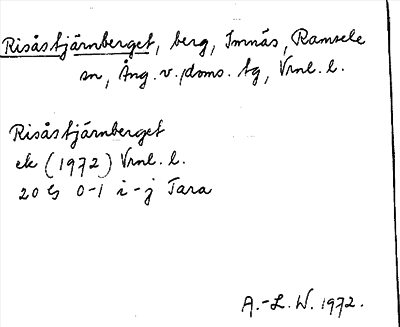 Risåstjärnberget, berg, Imnäs, Ramsele
sn, Ång. v. doms. tg, Vrnl. l.
Risåstjärnberget
ek (1972) Vrnl. l.
20 G 0-1 i-j Tara
A.-L. W. 1972.